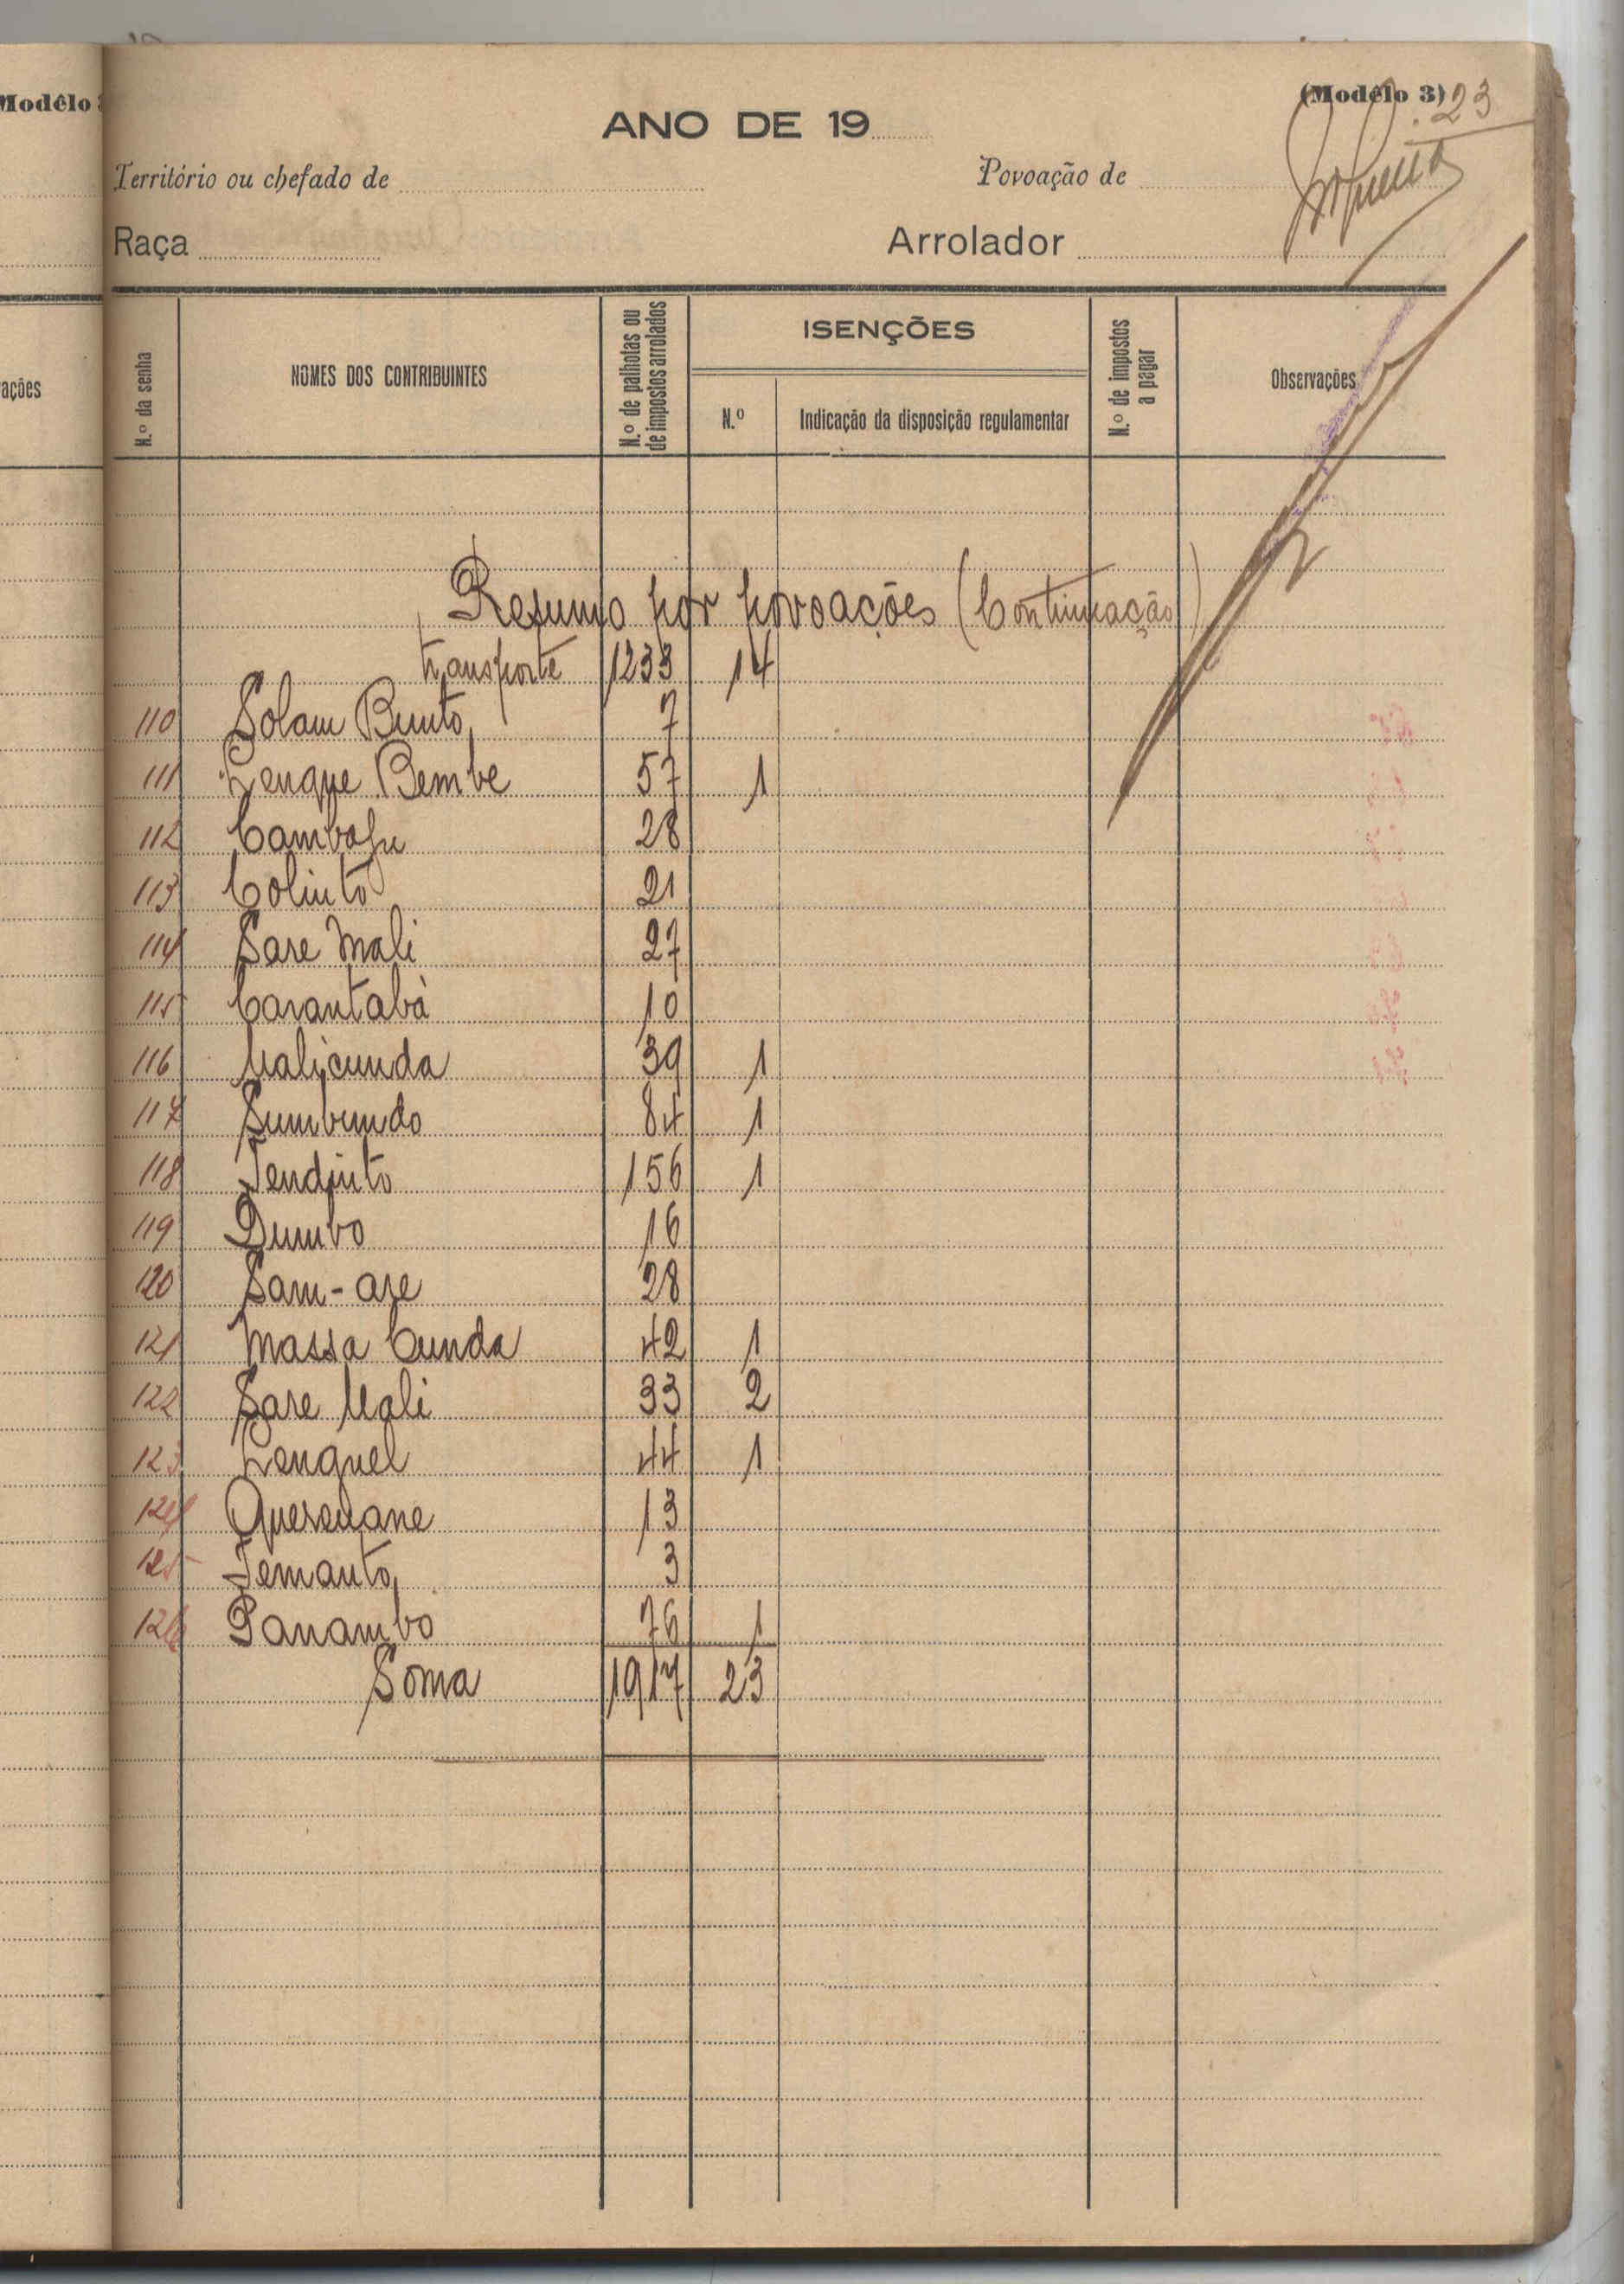 Modêlo
(Modêlo 3) 23
ANO DE 19
Território ou chefado de Povoação de
Raça Arrolador
ações
N.º da senha
NOMES DOS CONTRIBUINTES
N.º de palhotas ou de impostos arrolados
ISENÇÕES
N.º
Indicação da disposição regulamentar
N.º de impostos a pagar
Observações
Resumo por povoações (Continuação)
transporte 1233 14
110 Solam Bunto 7
111 Lenque Bembe 57 1
112 Cambaju 28
113 Colinto 21
114 Sare Mali 27
115 Carantabà 10
116 Ualicunda 39 1
117 Sumbundo 84 1
118 Tendinto 156 1
119 Dumbo 16
120 Sam-are 28
121 Massa Cunda 42 1
122 Sare Uali 33 2
123 Lenquel 44 1
124 Quereuane 13
125 Temanto 3
126 Panambo 76 1
Soma 1917 23